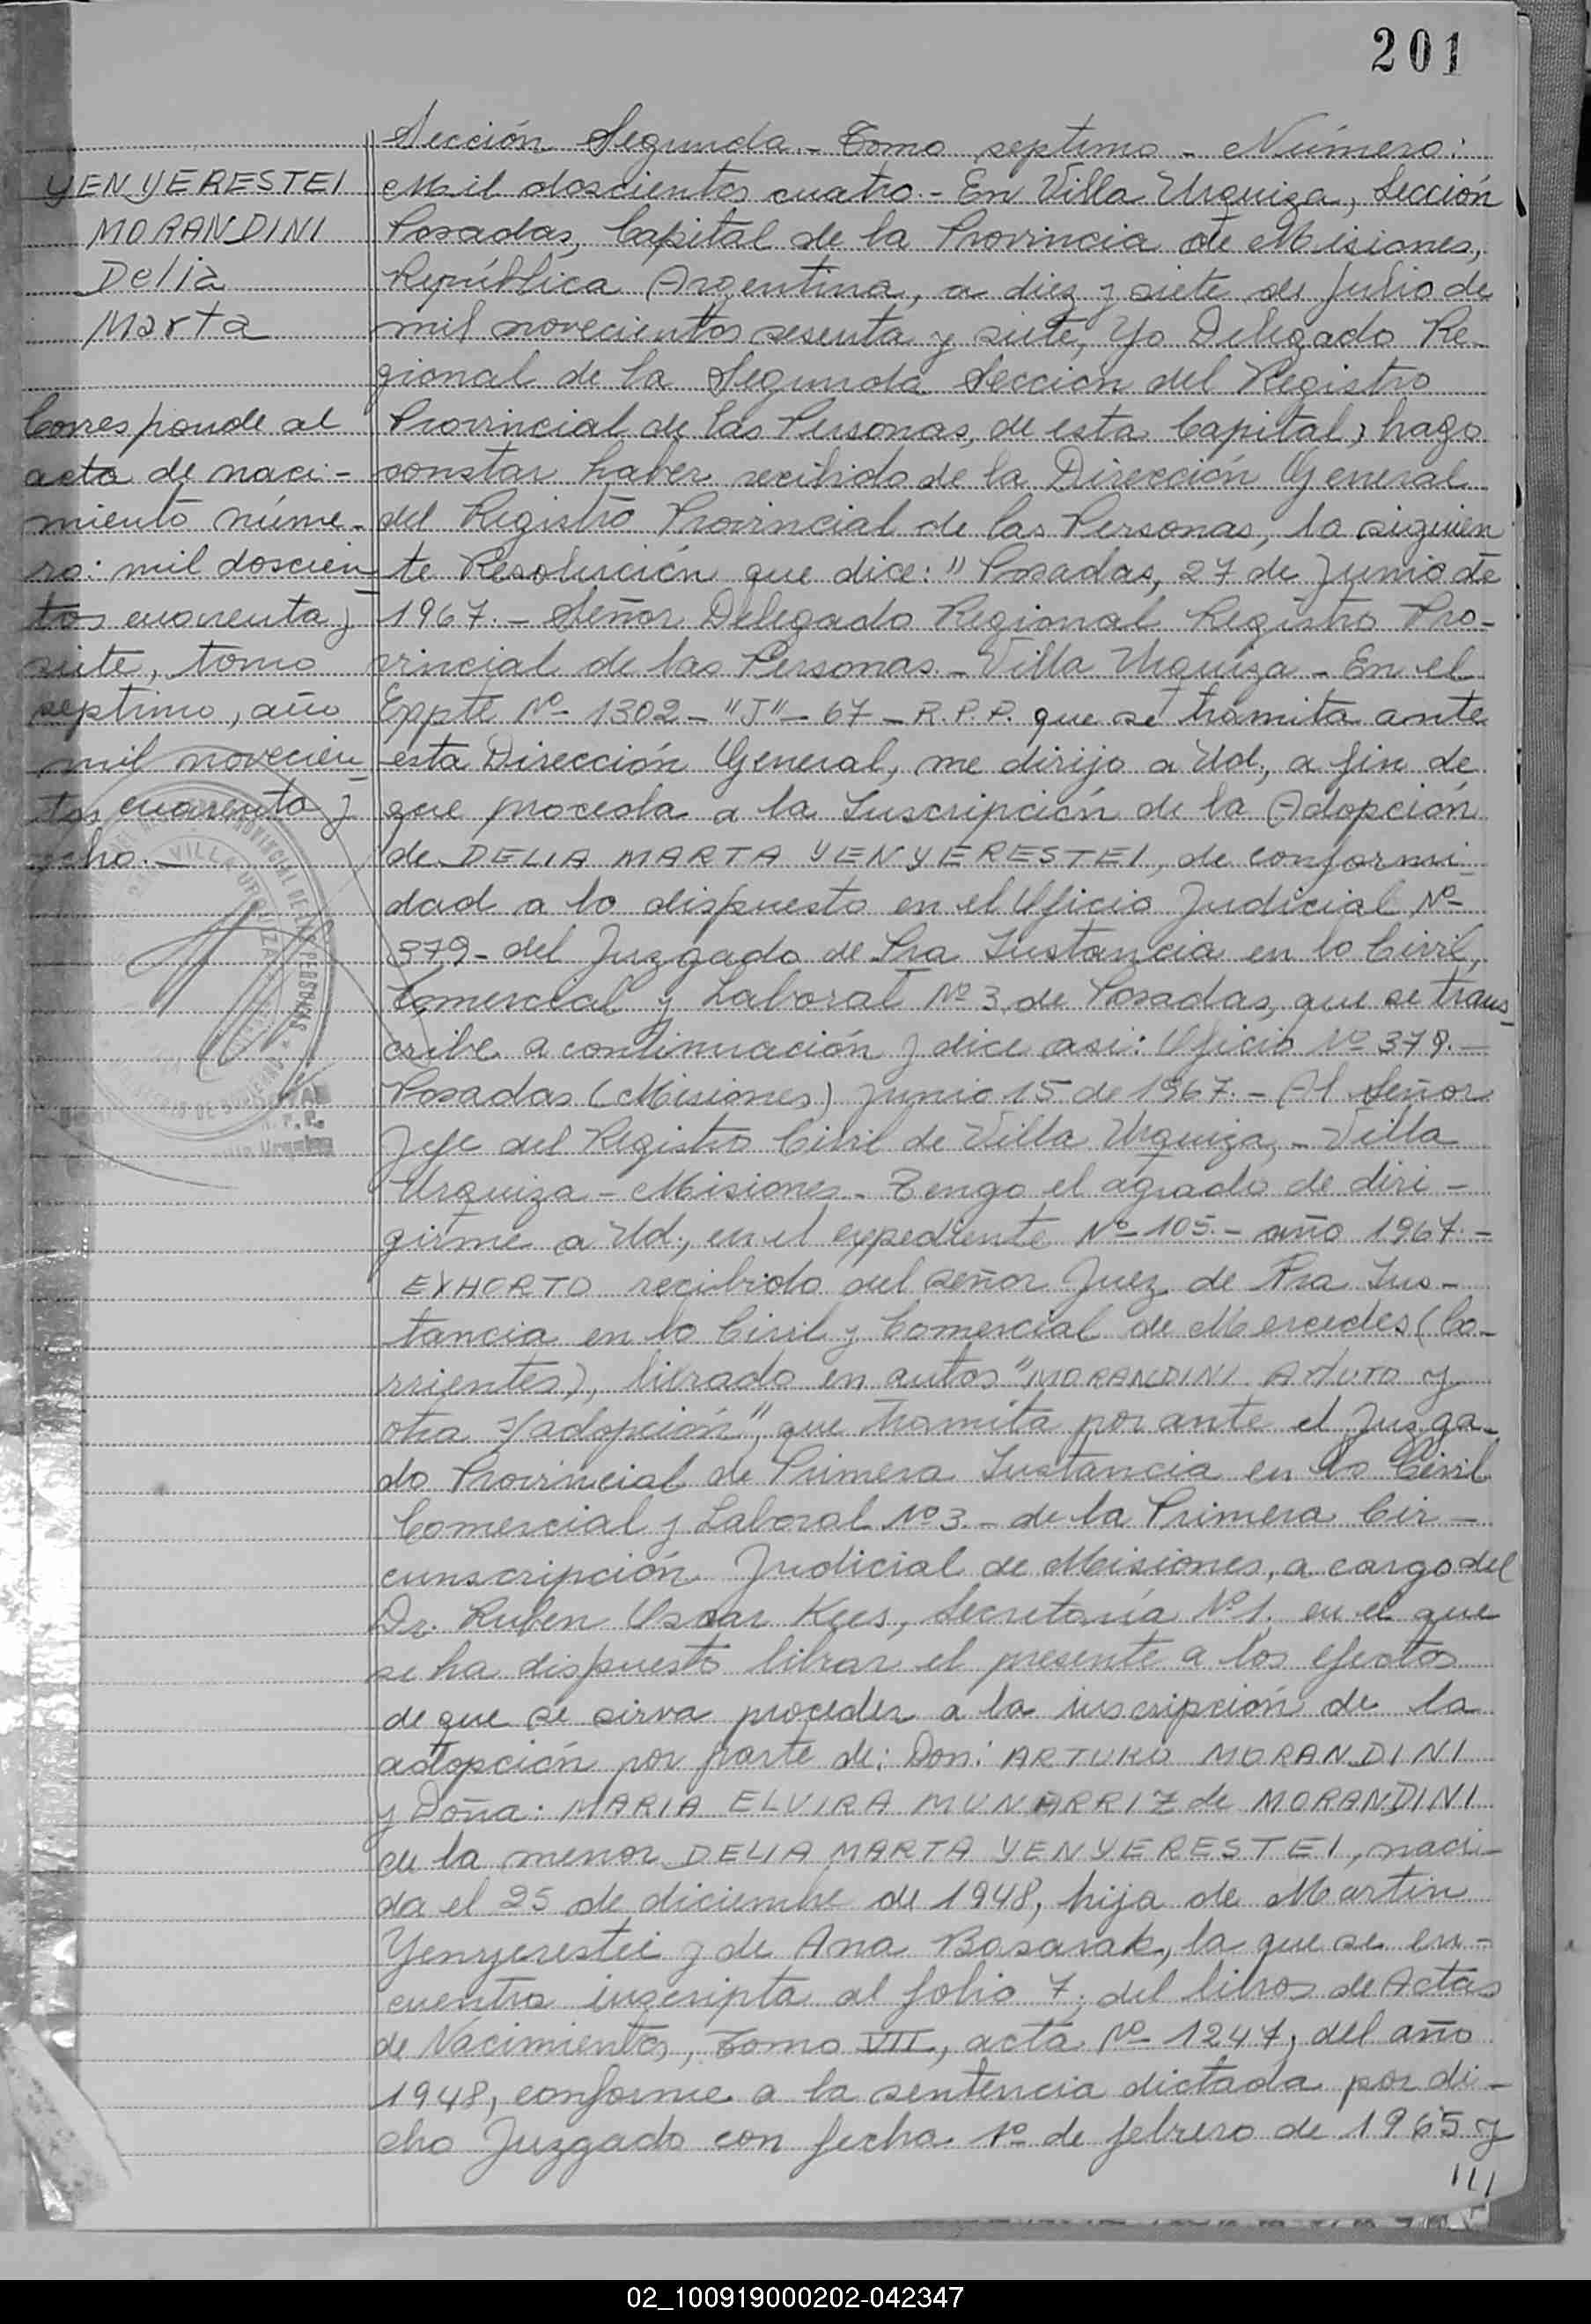 201
YENYERESTEI
MORANDINI
Delia
Marta
Corresponde al
acta de naci-
miento núme-
ro: mil doscien
tos cuarenta y
siete, tomo
septimo, año
mil novecien
tos cuarenta y
ocho.-
Sección Segunda - Tomo septimo - Número:
Mil doscientos cuatro.- En Villa Urquiza, Sección
Posadas, Capital de la Provincia de Misiones,
República Argentina, a diez y siete de Julio de
mil novecientos sesenta y siete, Yo Delegado Re-
gional de la Segunda Sección del Registro
Provincial de las Personas, de esta Capital, hago
constar haber recibido de la Dirección General
del Registro Provincial de las Personas, la siguien
te Resolución que dice: "Posadas, 27 de Junio de
1967.- Señor Delegado Regional Registro Pro-
vincial de las Personas.- Villa Urquiza - En el
Exppte Nº 1302-"J"-67-R.P.P. que se tramita ante
esta Dirección General, me dirijo a Ud., a fin de
que proceda a la Inscripción de la Adopción
de DELIA MARTA YENYERESTEI, de conformi-
dad a lo dispuesto en el Oficio Judicial Nº
379- del Juzgado de 1ra Instancia en lo Civil,
Comercial y Laboral Nº 3 de Posadas, que se trans-
cribe a continuación y dice asi: Oficio Nº 379.-
Posadas (Misiones) Junio 15 de 1967.- Al Señor
Jefe del Registro Civil de Villa Urquiza,- Villa
Urquiza - Misiones.- Tengo el agrado de diri-
girme a Ud., en el expediente Nº 105.- año 1967.-
EXHORTO recibido del señor Juez de 1ra Ins-
tancia en lo Civil y Comercial de Mercedes (Co-
rrientes), librado en autos "MORANDINI Arturo y
otra s/adopción", que tramita por ante el Juzga-
do Provincial de Primera Instancia en lo Civil
Comercial y Laboral Nº 3.- de la Primera Cir-
cunscripción Judicial de Misiones, a cargo del
Dr. Ruben Oscar Kees, Secretaría Nº 1, en el que
se ha dispuesto librar el presente a los efectos
de que se sirva proceder a la inscripción de la
adopción por parte de: Don: ARTURO MORANDINI
y Doña: MARIA ELVIRA MUNARRIZ de MORANDINI
de la menor DELIA MARTA YENYERESTEI, naci-
da el 25 de diciembre de 1948, hija de Martin
Yenyerestei y de Ana Basarak, la que se en-
cuentra inscripta al folio 7, del libros de Actas
de Nacimientos, Tomo VII, acta Nº 1247, del año
1948, conforme a la sentencia dictada por di-
cho Juzgado con fecha 1º de febrero de 1965 y
///
02_100919000202-042347